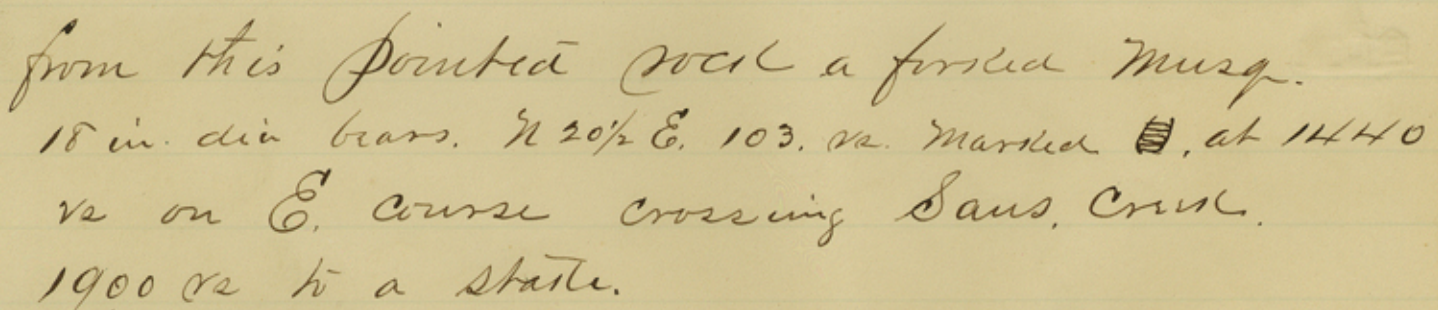 from this pointed rock a forked Musq.
18 in. dia bears. N 20 1/2 E. 103. vs. Marked . at 1440
vs on E. course crossing Saus. Creek.
1900 vs to a stake.